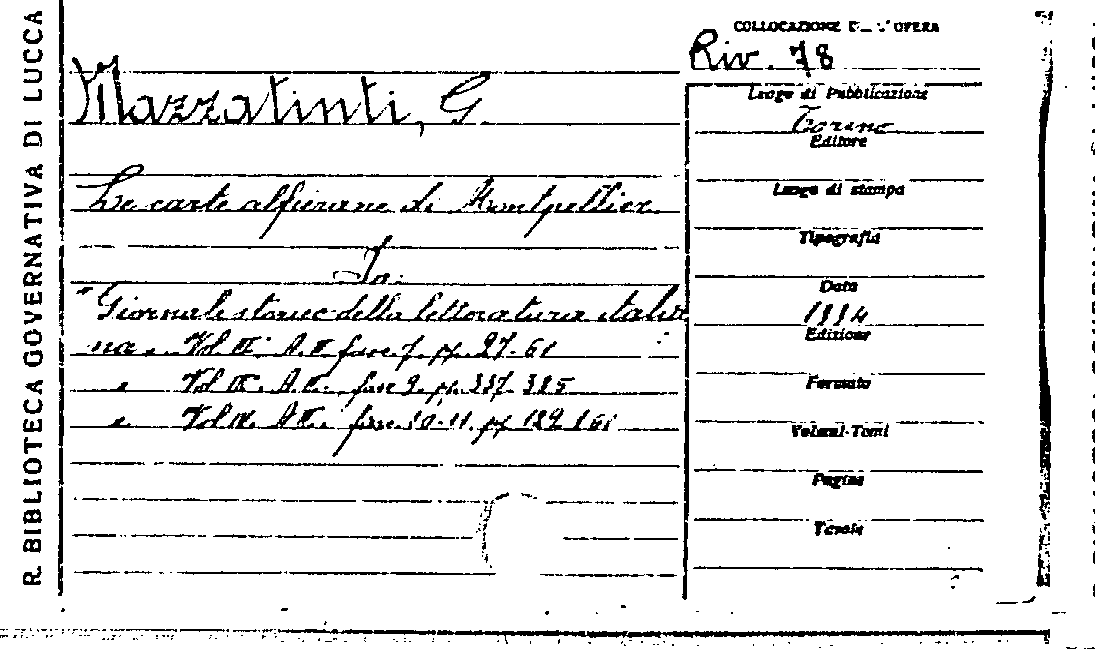 R. BIBLIOTECA GOVERNATIVA DI LUCCA
COLLOCAZIONE DELL'OPERA
Riv. 78
Mazzatinti, G.
Le carte alfierane di Montpellier.
In:
"Giornale storico della letteratura italia
na" Vol III. A. II fasc 7. pp. 27-61
" Vol III. A. II. fasc 9. pp. 337-385
" Vol IV. A. II. fasc. 10-11. pp 129-161
Luogo di Pubblicazione
Torino
Editore
Luogo di stampa
Tipografia
Data
1884
Edizione
Formato
Volumi-Tomi
Pagine
Tavole